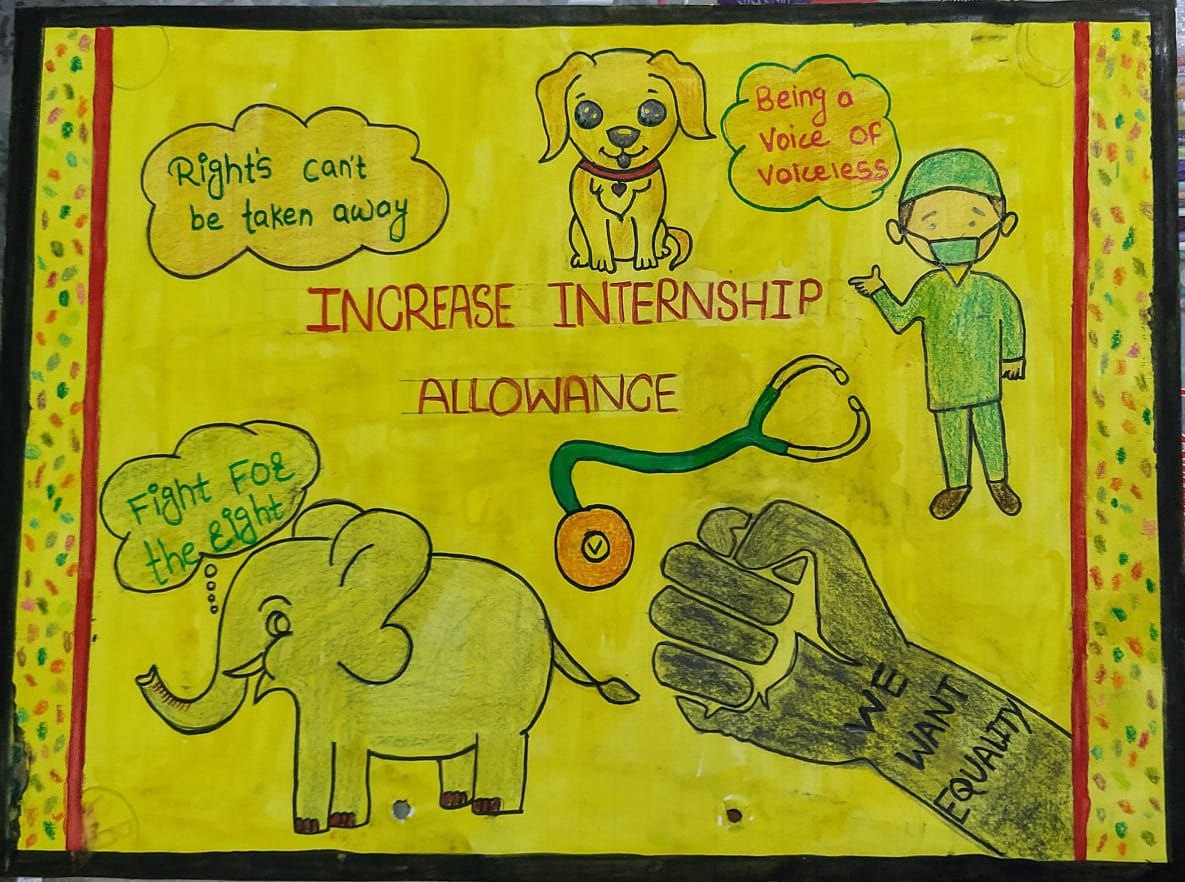 Right's can't
be taken away
Being a
Voice OF
Voiceless
INCREASE INTERNSHIP
ALLOWANCE
Fight FOR
the Right
WE
WANT
EQUALITY